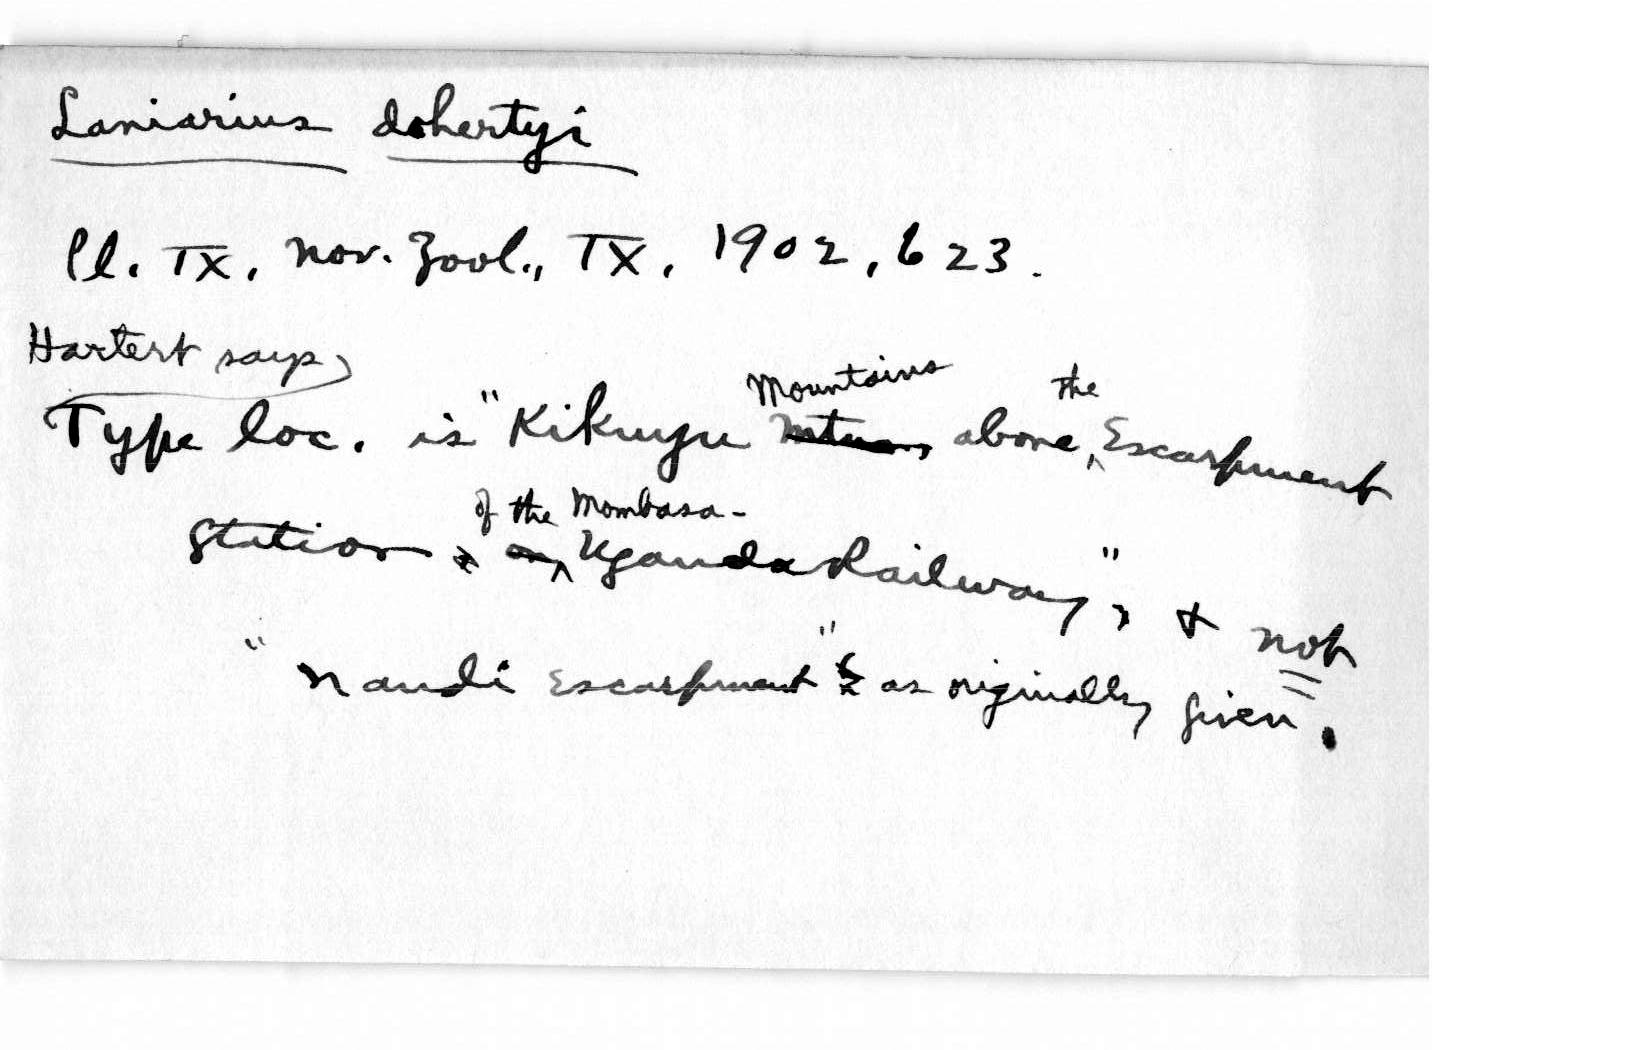 Laniarius dohertyi
Pl. IX, Nov. Zool., IX, 1902, 623.
Hartert says
Mountains the
Type loc. is "Kikuyu Mtns, above Escarpment
of the Mombasa-
Station, on Uganda Railway", & not
"Nandi Escarpment" as originally given.